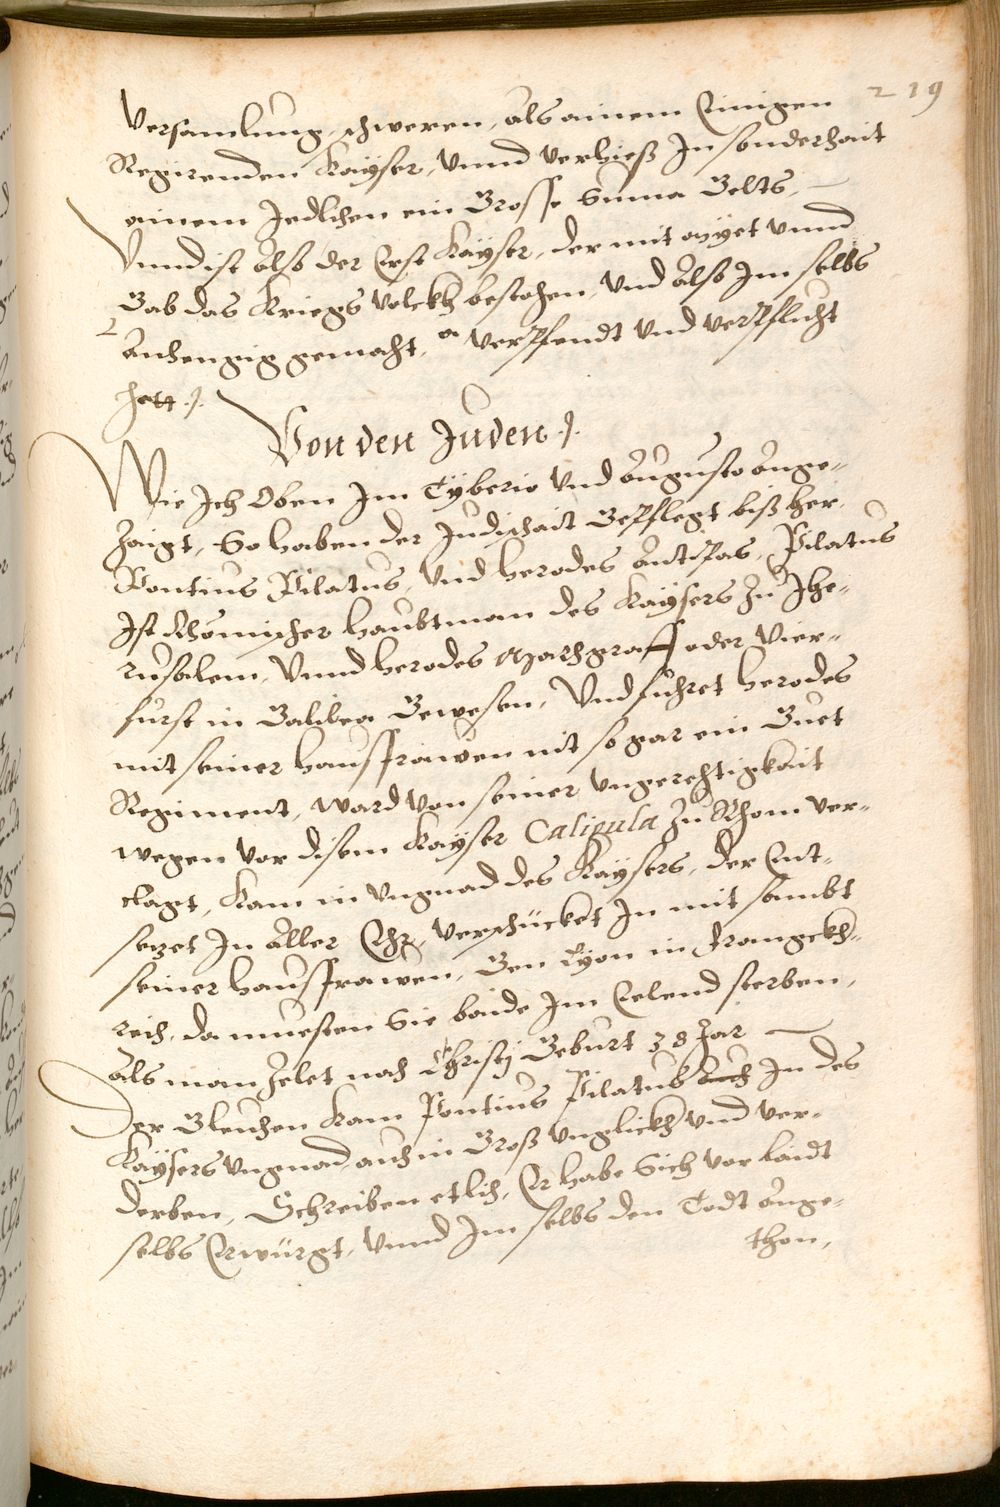 219
Versamlung, schweren, als ainem Ainigen
Regirenden Kayser, Vnnd verhieß In sonderhait
ainem Jedlichen ein Grosse Suma Gelts,
Vnnd ist also der Erst Kayser, der mit miet vnnd
Gab das Kriegs volckh bestochen, Vnd also Im selbs
anhengig gemacht, verpfendt vnd verpflicht
hett ./.
Von den Juden ./.
Wie Ich Oben Im Tyberio vnd Augusto ange-
zaigt, So haben der Judischait Gepflegt biß her
Pontius Pilatus, Vnd Herodes Antipas, Pilatus
Ist Rhömischer Haubtman des Kaysers zu Jhe-
rusalem, Vnnd Herodes Marchgraff oder Vier-
furst in Galilea Gewesen, Vnd fuhret Herodes
mit seiner Hausfrawen nit so gar ein Guet
Regiment, ward von seiner vngerechtigkait
wegen vor disem Kayser Caligula zu Rhom ver-
clagt, Kam in Vngnad des Kaysers, der Ent-
sezet In aller Ehr, verschücket In mit sambt
seiner Hausfrawen, Gen Lyon in Franngckh-
reich, da muesten Sie baide Im Eelend sterben,
als man Zelet nach Christj Geburt 38 Jar
Der Gleichen Kam Pontius Pilatus In des
Kaysers vngnad, auch in Groß vnglückh vnd ver-
derben, Schreiben etlich, Er habe Sich vor laidt
selbs Erwürgt, vnnd Im selbs den Todt ange-
thon,